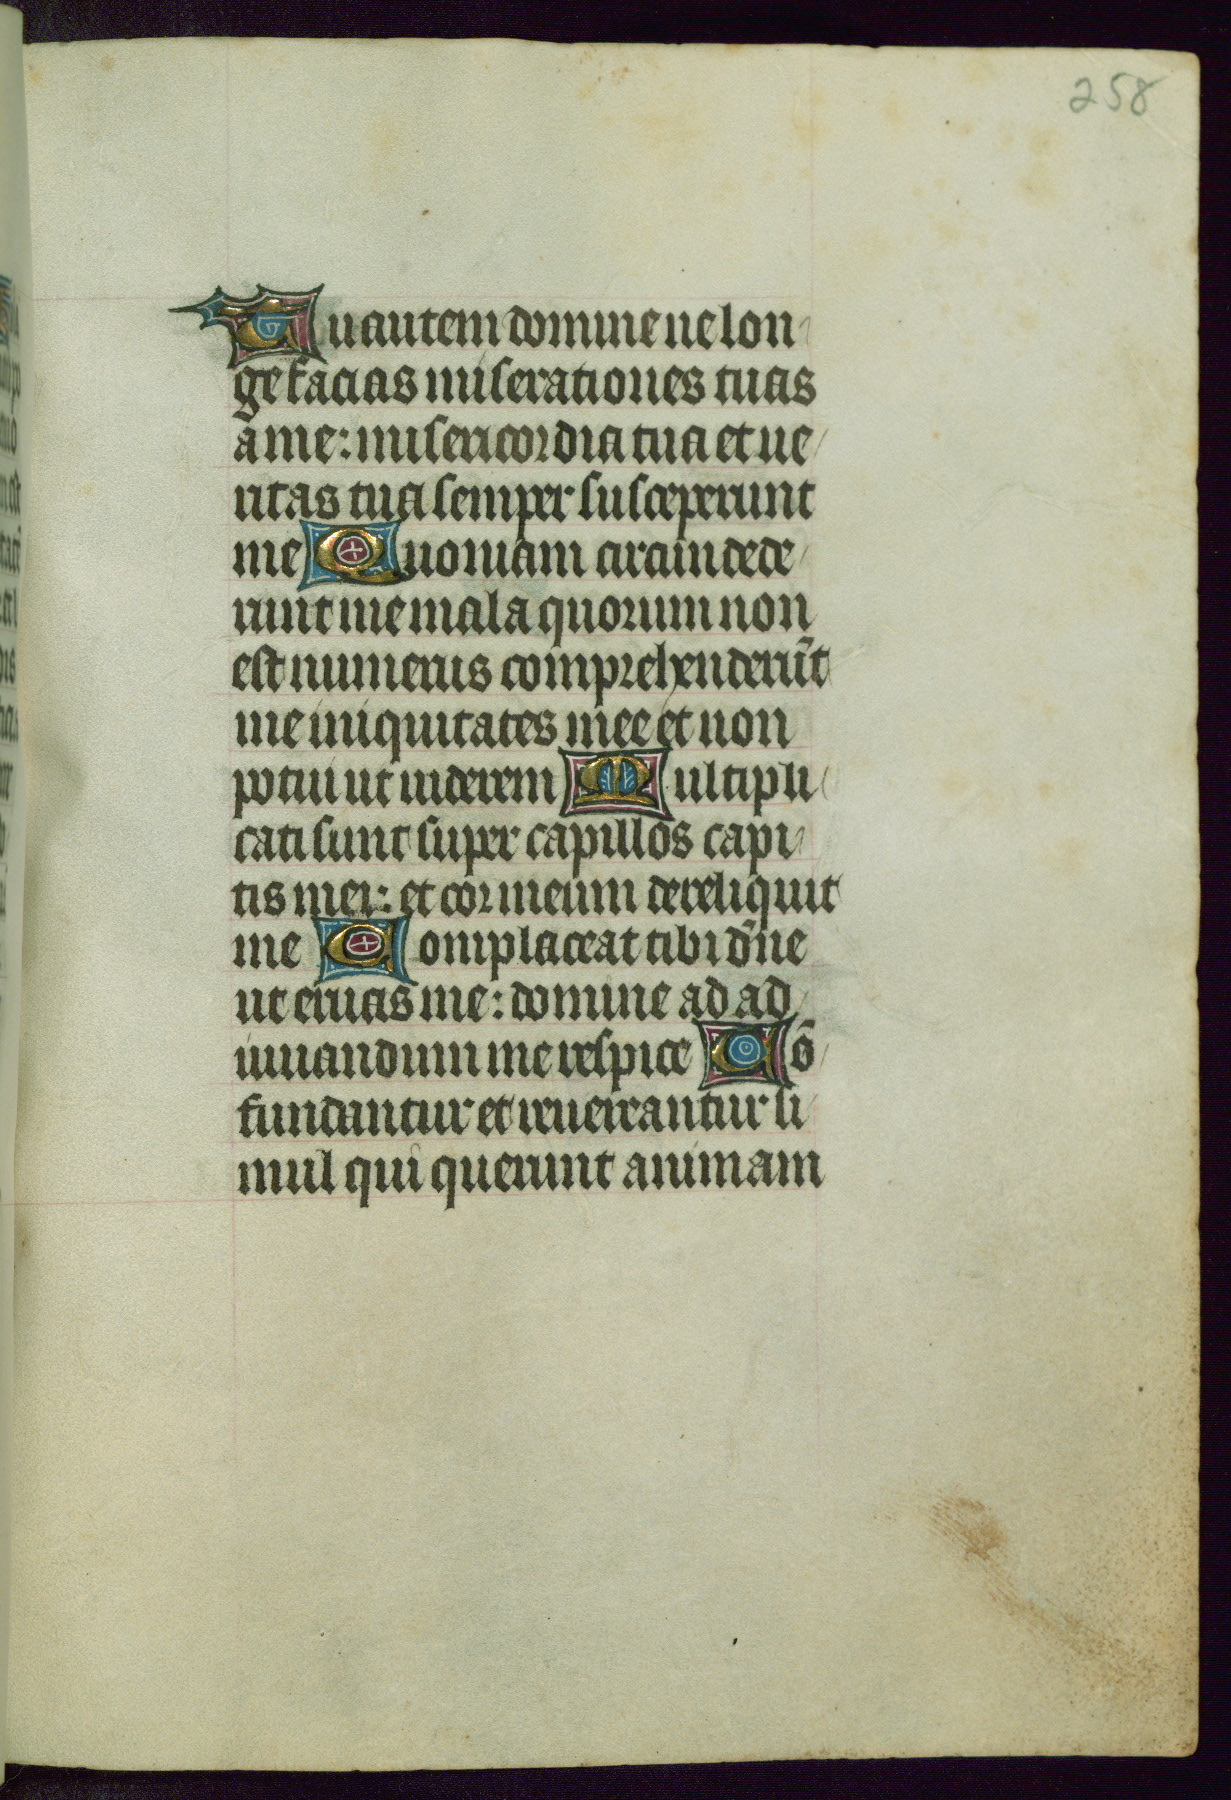 258
Tu autem domine ne lon
ge facias miserationes tuas
a me: misericordia tua et ue
ritas tua semper susceperunt
me Quoniam circumdede
runt me mala quorum non
est numerus comprehenderūt
me iniquitates mee et non
potui ut uiderem Multipli
cati sunt super capillos capi
tis mei: et cor meum dereliquit
me Complaceat tibi dn̄e
ut eruas me: domine ad ad
iuuandum me respice Cō
fundantur et reuereantur si
mul qui querunt animam